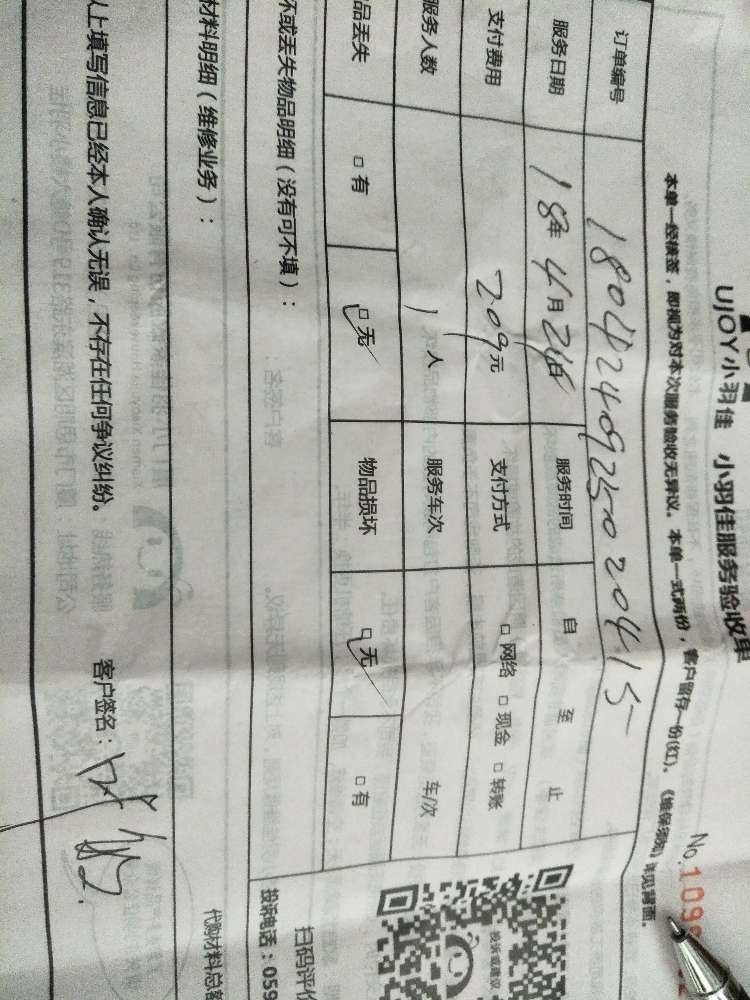 UJOY小羽佳 小羽佳服务验收单
No.109
本单一经接签，即视为对本次服务验收无异议。本单一式两份，客户留存一份(红)。《维保须知》详见背面。
订单编号 180424092502 0415
服务日期 18年4月24日 服务时间 自 至 止
支付费用 209元 支付方式 □网络 □现金 □转账
服务人数 1人 服务车次 车/次
品丢失 □有 □无 物品损坏 □无 □有
坏或丢失物品明细（没有可不填）：
投诉或建议
扫码评价
投诉电话：059
材料明细（维修业务）：
代购材料总
以上填写信息已经本人确认无误，不存在任何争议纠纷。 客户签名：